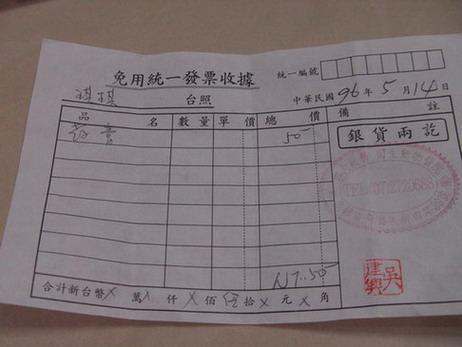 免用統一發票收據
統一編號
台照
中華民國 96 年 5 月 14 日
品名 數量 單價 總價 備註
50
銀貨兩訖
吳建
NT.50
合計新台幣 X 萬 X 仟 X 佰 伍 拾 X 元 X 角